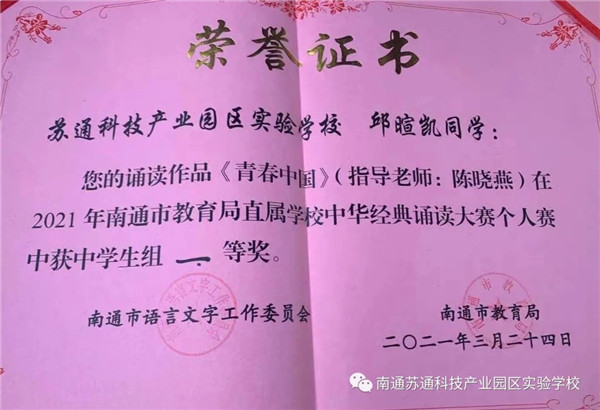 荣誉证书
苏通科技产业园区实验学校 邱暄凯同学：
您的诵读作品《青春中国》（指导老师：陈晓燕）在
2021年南通市教育局直属学校中华经典诵读大赛个人赛
中获中学生组 一 等奖。
南通市语言文字工作委员会
南通市教育局
二〇二一年三月二十四日
南通苏通科技产业园区实验学校